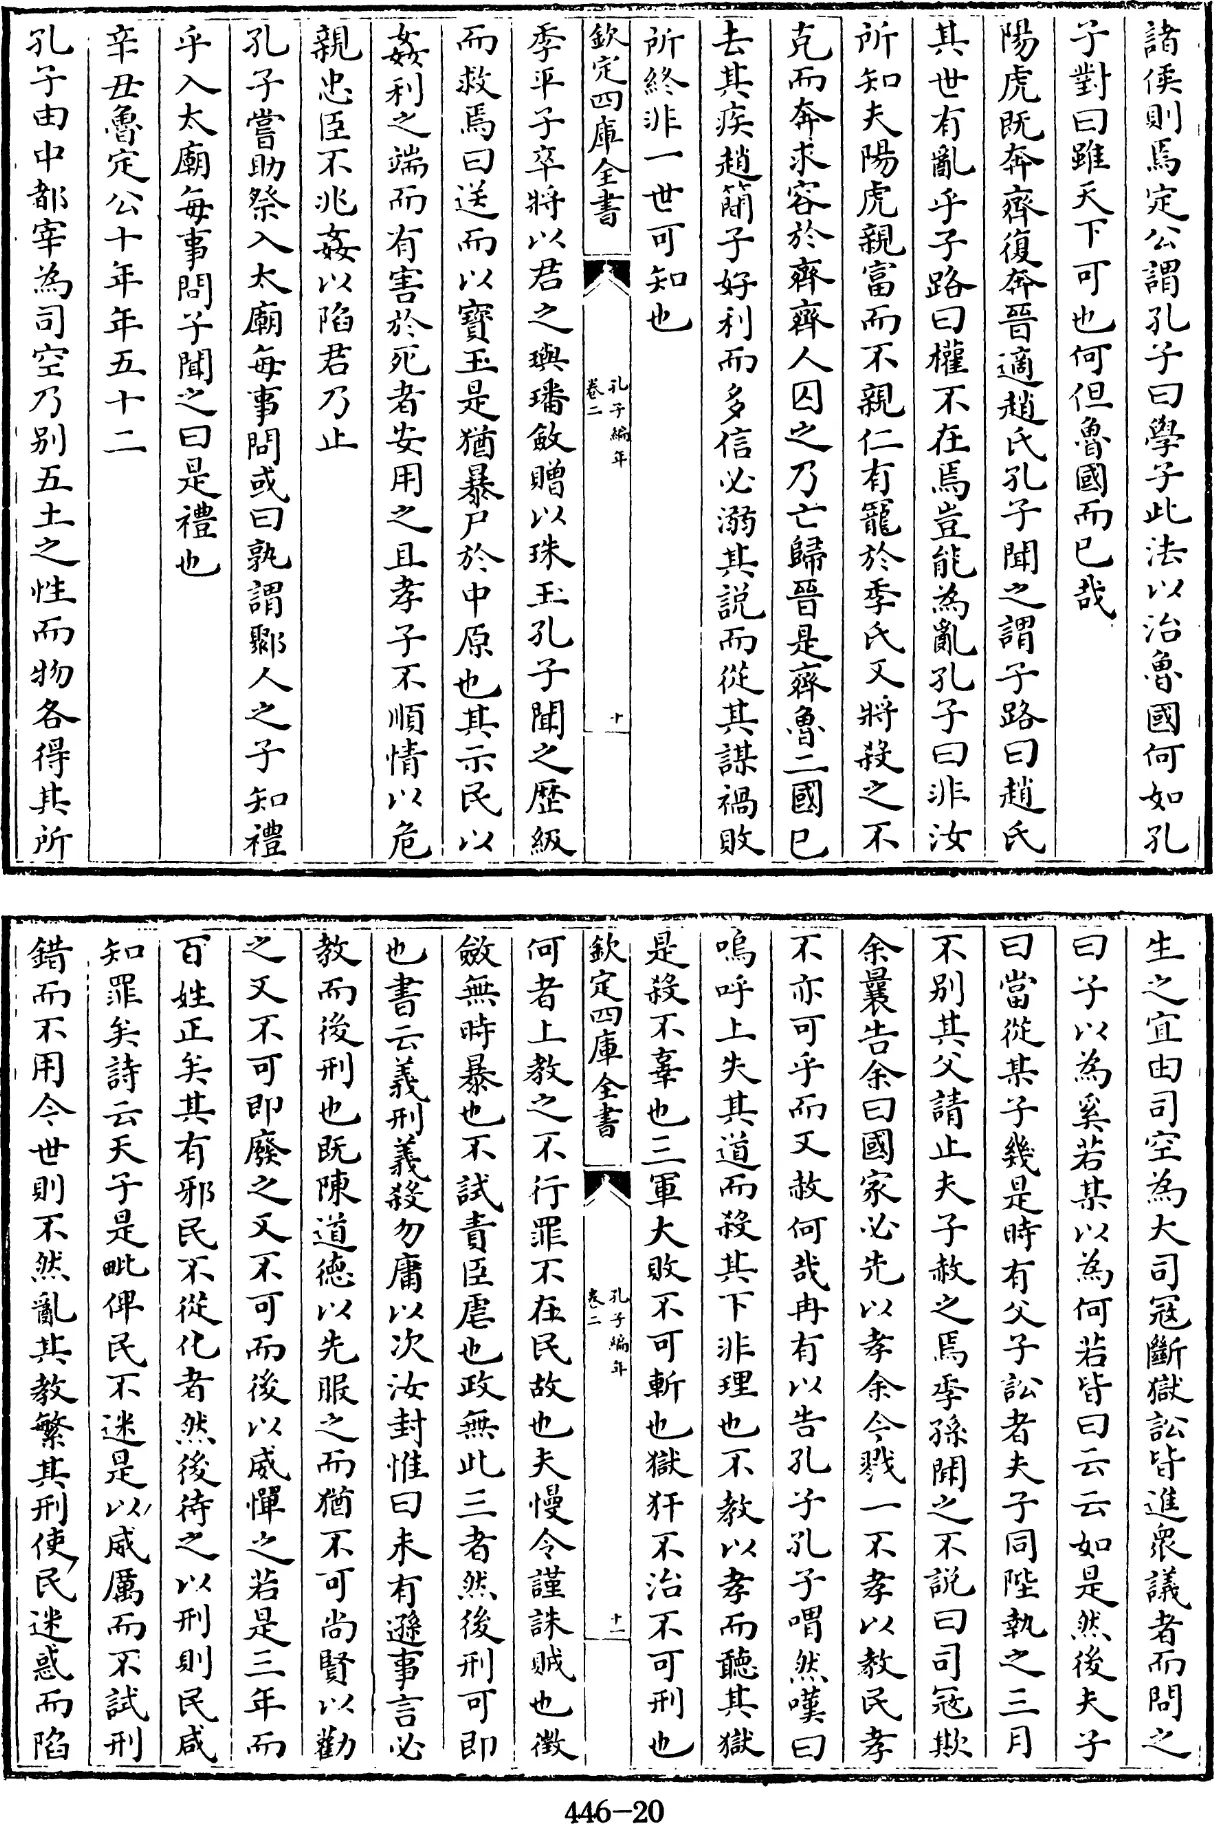 諸侯則焉定公謂孔子曰學子此法以治魯國何如孔
子對曰雖天下可也何但魯國而已哉
陽虎既奔齊復奔晉適趙氏孔子聞之謂子路曰趙氏
其世有亂乎子路曰權不在焉豈能為亂孔子曰非汝
所知夫陽虎親富而不親仁有寵於季氏又將殺之不
克而奔求容於齊齊人囚之乃亡歸晉是齊魯二國已
去其疾趙簡子好利而多信必溺其説而從其謀禍敗
所終非一世可知也
欽定四庫全書
孔子編年
卷二
十
季平子卒將以君之璵璠斂贈以珠玉孔子聞之歷級
而救焉曰送而以寶玉是猶暴尸於中原也其示民以
姦利之端而有害於死者安用之且孝子不順情以危
親忠臣不兆姦以陷君乃止
孔子嘗助祭入太廟每事問或曰孰謂鄹人之子知禮
乎入太廟每事問子聞之曰是禮也
辛丑魯定公十年年五十二
孔子由中都宰為司空乃别五土之性而物各得其所
生之宜由司空為大司冦斷獄訟皆進衆議者而問之
曰子以為奚若某以為何若皆曰云云如是然後夫子
曰當從某子幾是時有父子訟者夫子同陛執之三月
不别其父請止夫子赦之焉季孫聞之不説曰司冦欺
余曩告余曰國家必先以孝余今戮一不孝以教民孝
不亦可乎而又赦何哉冉有以告孔子孔子喟然嘆曰
嗚呼上失其道而殺其下非理也不教以孝而聽其獄
是殺不辜也三軍大敗不可斬也獄犴不治不可刑也
欽定四庫全書
孔子編年
卷二
十一
何者上教之不行罪不在民故也夫慢令謹誅賊也徵
斂無時暴也不試責臣虐也政無此三者然後刑可即
也書云義刑義殺勿庸以次汝封惟曰未有遜事言必
教而後刑也既陳道德以先服之而猶不可尚賢以勸
之又不可即廢之又不可而後以威憚之若是三年而
百姓正矣其有邪民不從化者然後待之以刑則民咸
知罪矣詩云天子是毗俾民不迷是以威厲而不試刑
錯而不用今世則不然亂其教繁其刑使民迷惑而陷
446-20